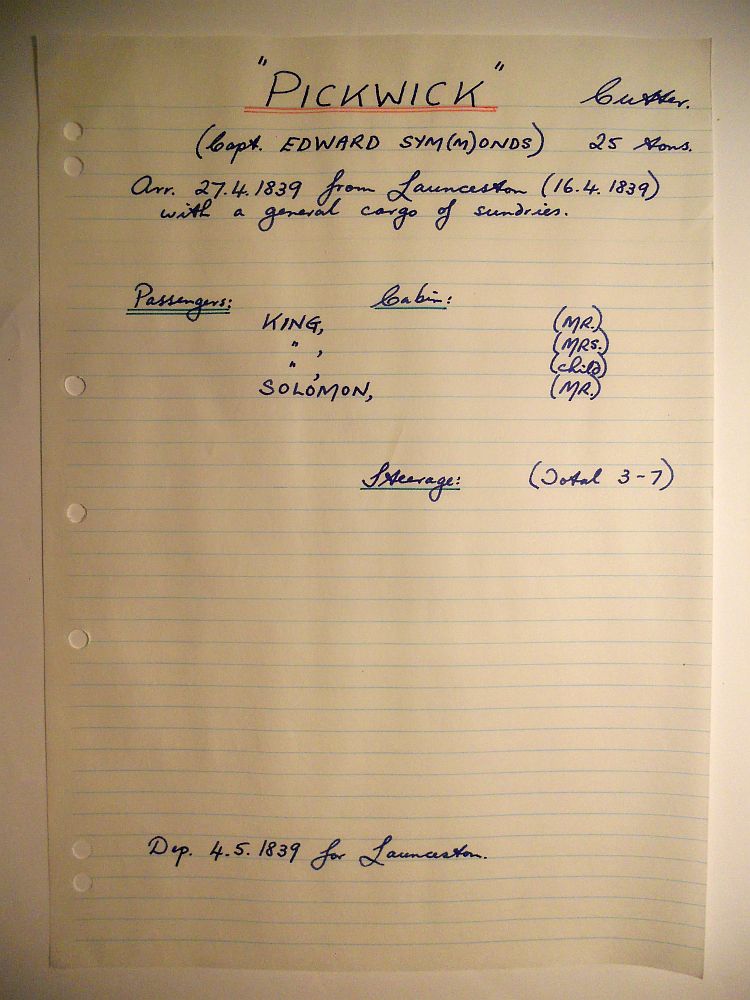 "PICKWICK" Cutter.
(Capt. EDWARD SYM(M)ONDS) 25 tons.
Arr. 27.4.1839 from Launceston (16.4.1839)
with a general cargo of sundries.
Passengers: Cabin:
KING, (MR.)
" , (MRS.)
" , (child)
SOLOMON, (MR.)
Steerage: (Total 3-7)
Dep. 4.5.1839 for Launceston.